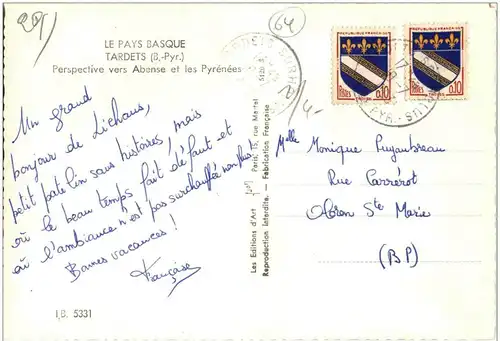 64
LE PAYS BASQUE
TARDETS (B.-Pyr.)
Perspective vers Abense et les Pyrénées
REPUBLIQUE FRANCAISE
TROYES
0,10
REPUBLIQUE FRANCAISE
TROYES
0,10
Un grand
bonjour de Lichans,
petit patelin sans histoires, mais
où le beau temps fait défaut et
où l'ambiance n'est pas surchauffée non plus!
Bonnes vacances!
Françoise
I.B. 5331
Les Editions d'Art
Paris, 15, rue Martel
Reproduction Interdite. - Fabrication Française
Melle Monique Puyaubreau
Rue Carrérot
Oloron Ste Marie
(BP)